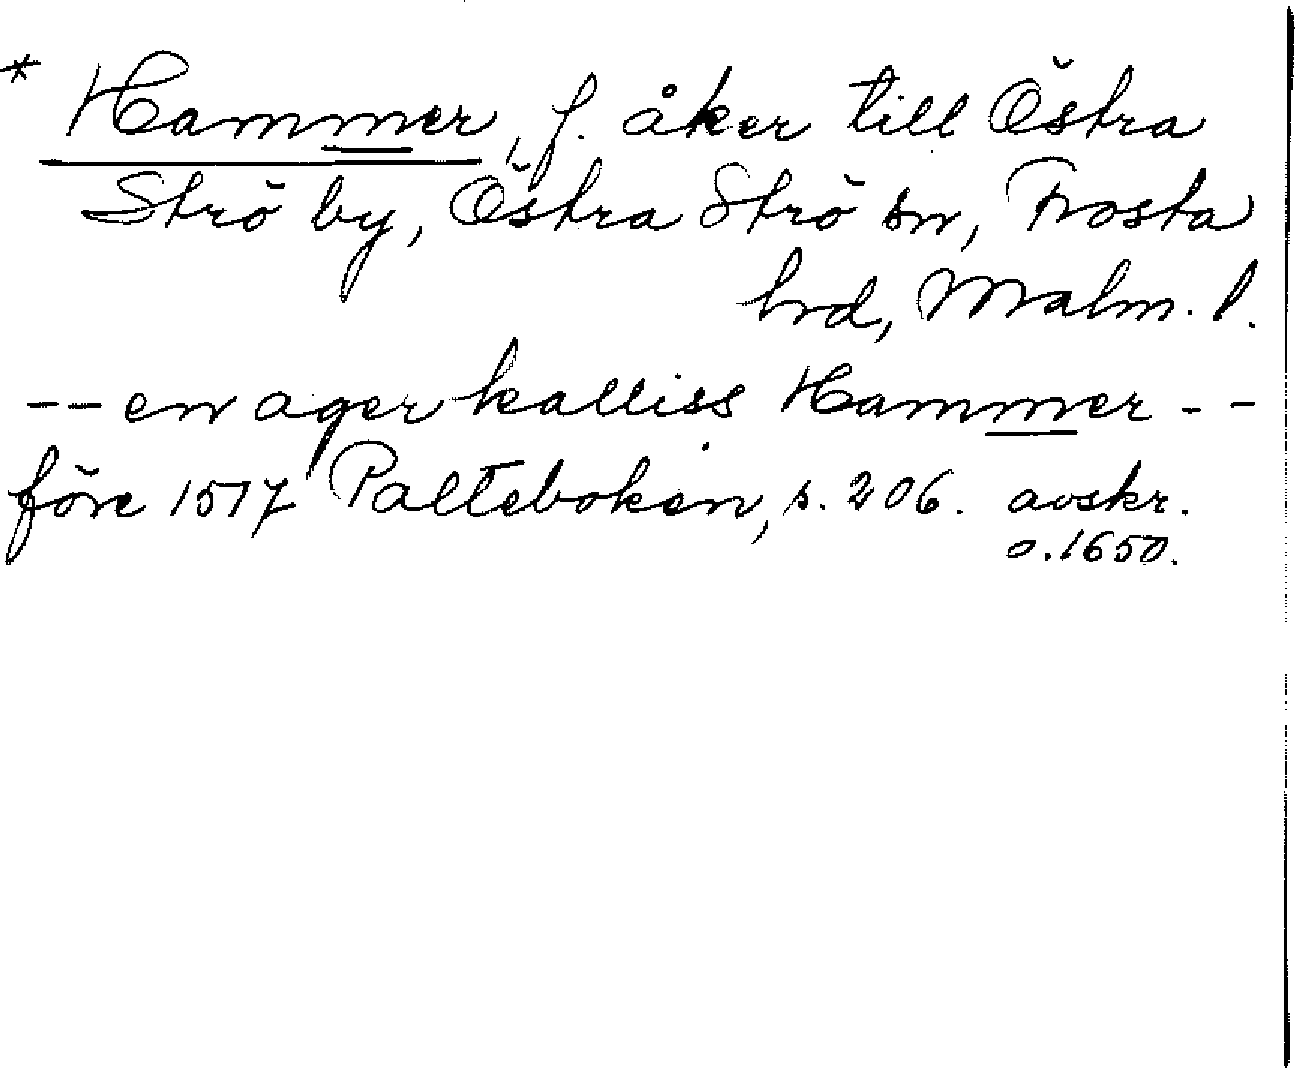 * Hammer, f. åker till Östra
Strö by, Östra Strö sn, Frosta
hrd, Malm. l.
-- en ager kalliss Hammer --
före 1517 Palteboken, s. 206. avskr.
o. 1650.